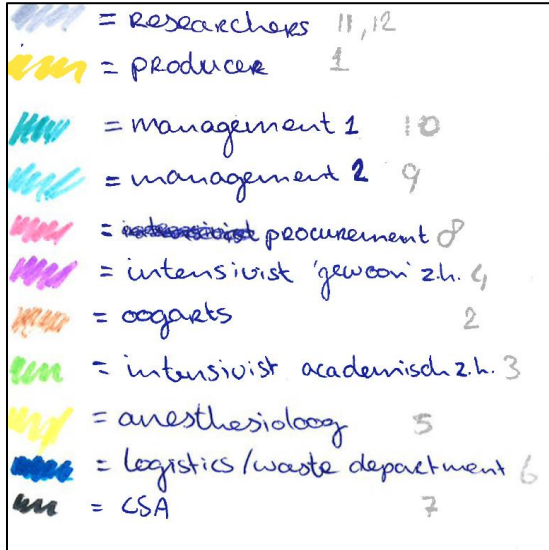 = Researchers 11, 12
= producer 1
= management 1 10
= management 2 9
= procurement 8
= intensivist 'gewoon' z.h. 4
= oogarts 2
= intensivist academisch z.h. 3
= anesthesioloog 5
= logistics/waste department 6
= CSA 7